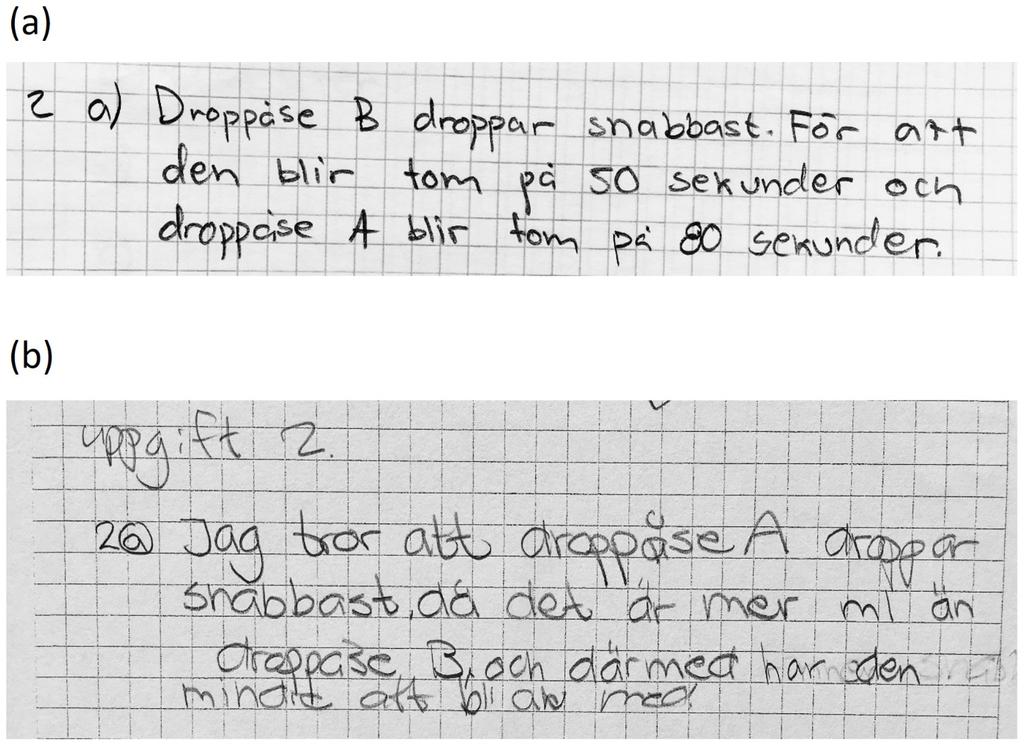 (a)
2 a) Droppåse B droppar snabbast. För att
den blir tom på 50 sekunder och
droppåse A blir tom på 80 sekunder.
(b)
uppgift 2.
2a Jag tror att droppåse A droppar
snabbast, då det är mer ml än
droppåse B, och därmed har den
att bli av med